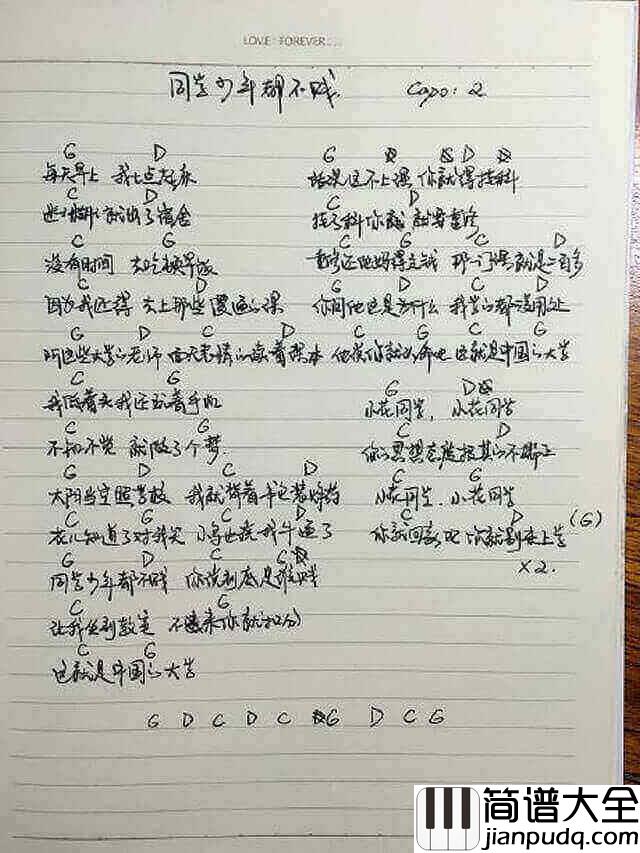 LOVE FOREVER....
同学少年都不贱 Capo: 2
G D
每天早上 我七点起床
C D
就出了宿舍
C G
没有时间 去吃早饭
C D
因为我还得 去上那些傻逼的课
G D C D
阿这些大学的老师 的读着课本
C G
我低着头我还玩着手机
C G
不知不觉 就做了个梦
G D C D
太阳当空照学校 我就背着书包装
C G C D
花儿知道了对我笑 小鸟也说我牛逼了
G D C G
同学少年都不贱 你说到底是谁贱
C G
让我坐到教室 不进来你就扣2分
C G
这就是中国的大学
G D
结果这不上课 你就得挂科
C D
挂了科你就 就要重修
C G C D
重修还他妈得交钱 那一门课就是二百多
G D C D
你问他也是为什么 我学的都没用处
C G C G
他说你就认命吧 这就是中国的大学
G D
小花同学, 小花同学
C D
你的思想态度极其的不端正
C G
小花同学, 小花同学
C D (G)
你就回家吧 你就别来上学
X2.
G D C D C G D C G
简谱大全
jianpudq.com